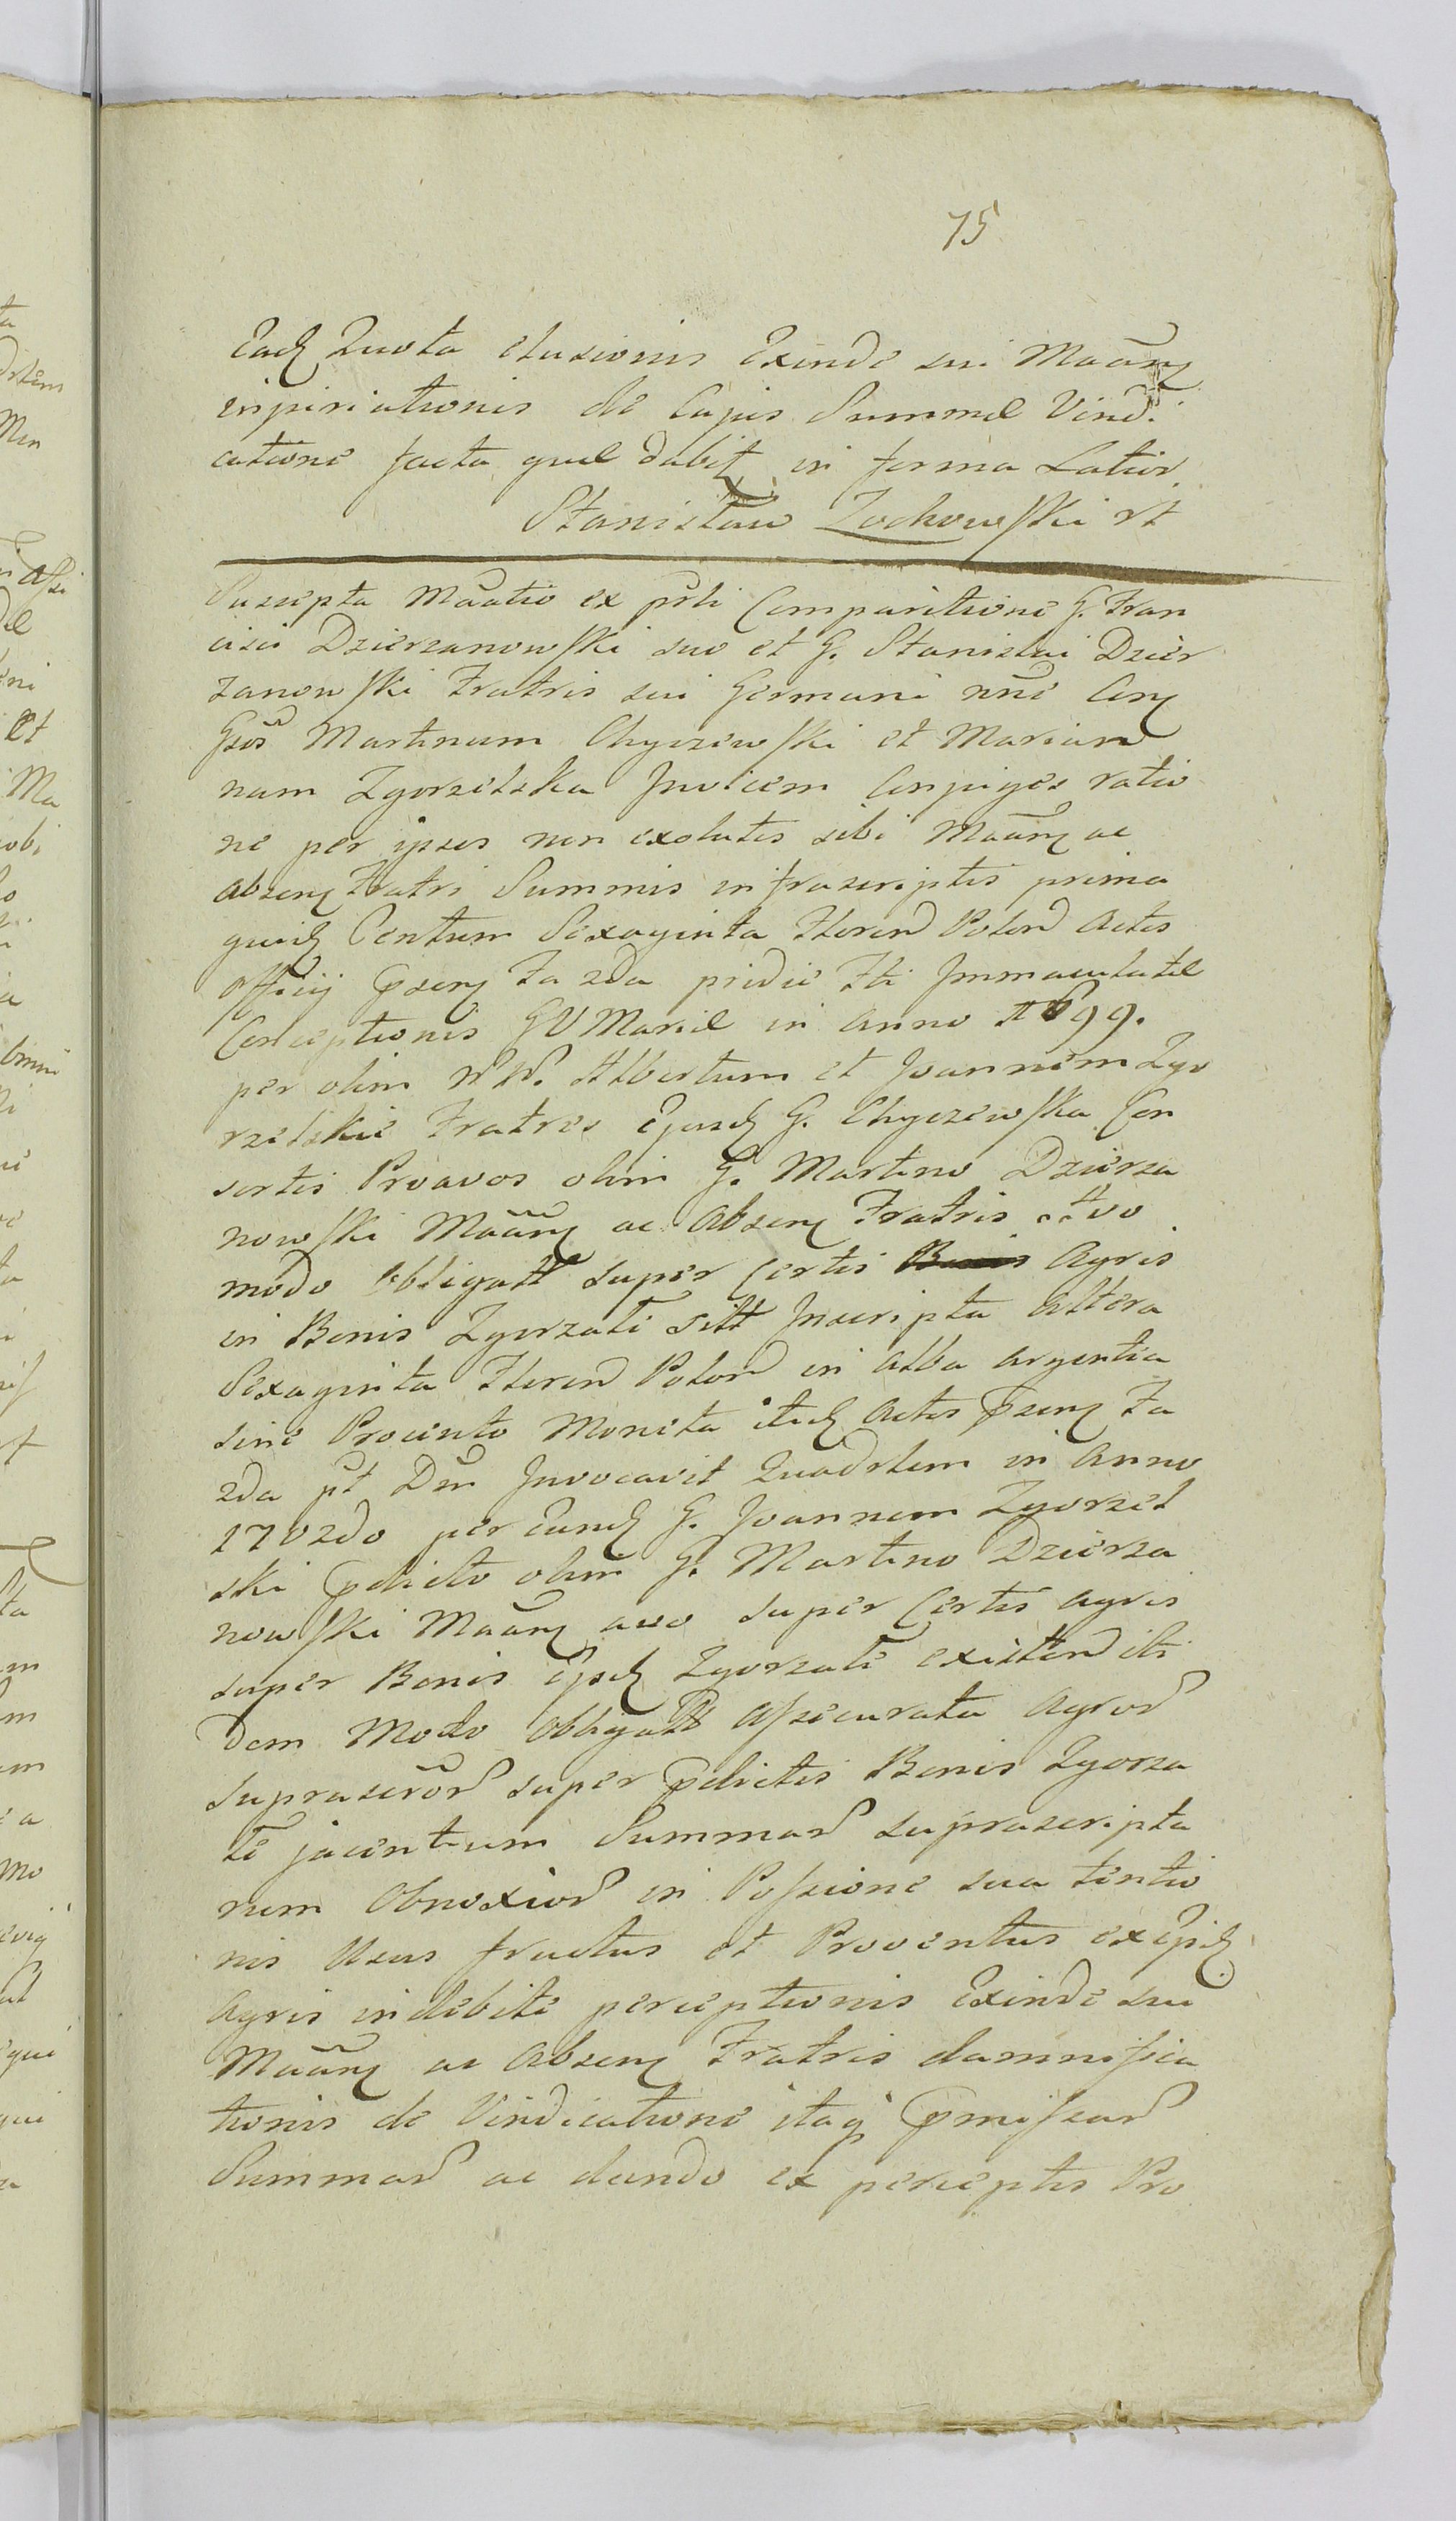 75
Eadq Quota elusionis Exinde sui Maãnq
inpiriationis de Cujus Summæ Vind:
catione facta quæ dabitq in forma Latior
Stanisław Zochowski rt
Suscepta Mãatio ex prsti Comparitione G. Fran
cisci Dzierzanowski suo et G. Stanislai Dzier
zanowski Fratris sui Germani nne Conq
Gsos Martinum Chyczewski et Marian
nam Zgorzelska Invicem Conjuges ratio
ne per ipsos non exolutis sibi Maãnq ac
absenq Fratri Summis infrascriptis prima
quidq Centum Sexaginta Floren Polon Actis
Officij Psenq Fa 2da pridie Fti Immaculatæ
Conceptionis GV Mariæ in Anno 1699.
per olim NN. Albertum et Joannem Zgo
rzelskie Fratres Ejusdq G. Chyczewska Con
sortis Proavos olim G. Martino Dzierza
nowski Maãnq ac Absenq Fratris Avo
modo obligatt super Certis Bonis Agris
in Bonis Zgorzałe sitt Inscripta altera
Sexaginta Floren Polon in alba argentea
sine Procinto Moneta itidq Actis Psenq Fa
2da pt Dm Invocavit Quadrlem in Anno
1702do per Eundq G. Joannem Zgorzel
ski Pdicto olim G. Martino Dzierza
nowski Maãnq avo super Certis agris
super Bonis Ejusdq Zgorzałe existten iti
dem Modo obligatt Assecurata Agror
suprascror super Pdictis Bonis Zgorza
łe jacentium Summar suprascripta
rum Obnoxior in Possione sua tentio
nis Usus fructus et Proventus ex Ejsdq
Agris indebite perceptionis Exinde sui
Maãnq ac Absenq Fratris damnifica
tionis de Vindicatione itaq Pmissar
Summar ac dando ex perceptis Pro